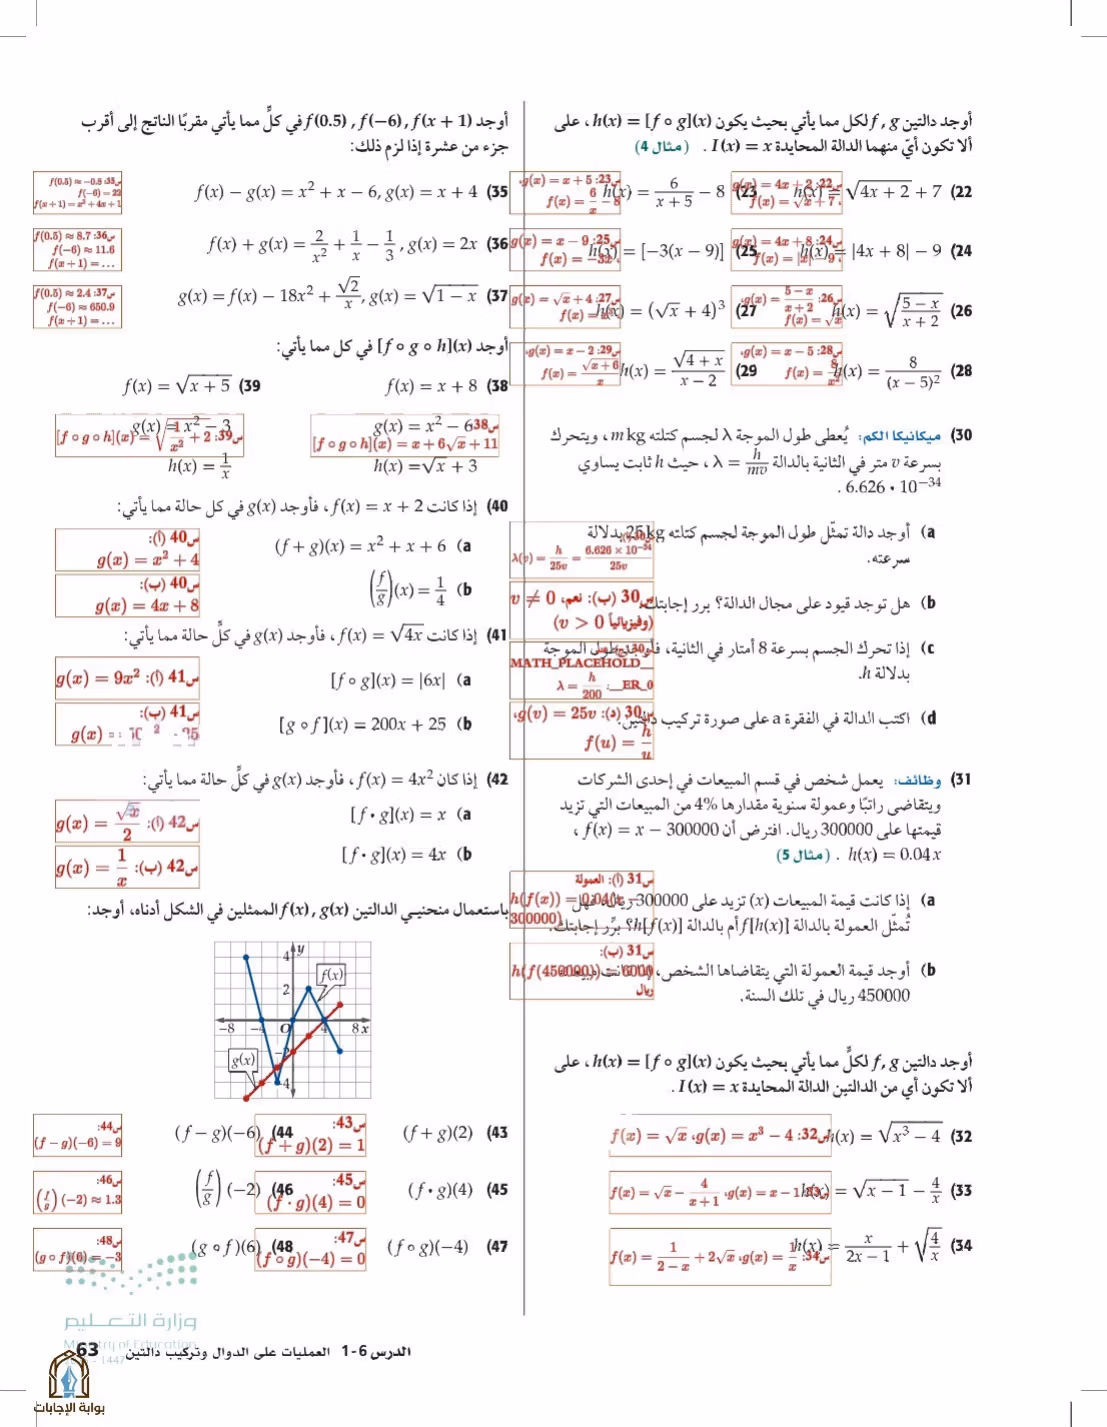 أوجد دالتين f, g لكل مما يأتي بحيث يكون h(x) = [f ∘ g](x)، على
ألا تكون أيّ منهما الدالة المحايدة I(x) = x . (مثال 4)
(22 h(x) = √(4x + 2) + 7
س22: g(x) = 4x + 2،
f(x) = √x + 7
(23 h(x) = 6/(x + 5) − 8
س23: g(x) = x + 5،
f(x) = 6/x − 8
(24 h(x) = |4x + 8| − 9
س24: g(x) = 4x + 8،
f(x) = |x| − 9
(25 h(x) = [−3(x − 9)]
س25: g(x) = x − 9،
f(x) = −3x
(26 h(x) = √((5 − x)/(x + 2))
س26: g(x) = (5 − x)/(x + 2)،
f(x) = √x
(27 h(x) = (√x + 4)³
س27: g(x) = √x + 4،
(28 h(x) = 8/(x − 5)²
س28: g(x) = x − 5،
f(x) = 8/x²
(29 h(x) = √(4 + x)/(x − 2)
س29: g(x) = x − 2،
f(x) = √(x + 6)/x
(30 ميكانيكا الكم: يُعطى طول الموجة λ لجسم كتلته m kg، ويتحرك
بسرعة v متر في الثانية بالدالة λ = h/mv، حيث h ثابت يساوي
6.626 • 10⁻³⁴ .
(a أوجد دالة تمثّل طول الموجة لجسم كتلته 25 kg بدلالة
سرعته.
λ(v) = h/25v = 6.626 × 10⁻³⁴/25v
(b هل توجد قيود على مجال الدالة؟ برر إجابتك.
س30 (ب): نعم، v ≠ 0
(وفيزيائياً v > 0)
(c إذا تحرك الجسم بسرعة 8 أمتار في الثانية، فأوجد طول الموجة
بدلالة h.
MATH_PLACEHOLD__
λ = h/200 :__ER_0
(d اكتب الدالة في الفقرة a على صورة تركيب دالتين.
س30 (د): g(v) = 25v،
f(u) = h/u
(31 وظائف: يعمل شخص في قسم المبيعات في إحدى الشركات
ويتقاضى راتبًا وعمولة سنوية مقدارها 4% من المبيعات التي تزيد
قيمتها على 300000 ريال. افترض أن f(x) = x − 300000 ،
h(x) = 0.04x . (مثال 5)
(a إذا كانت قيمة المبيعات (x) تزيد على 300000 ريال، فهل
تُمثّل العمولة بالدالة f[h(x)] أم بالدالة h[f(x)]؟ برّر إجابتك.
س31 (أ): العمولة
h(f(x)) = 0.04(x −
300000)
(b أوجد قيمة العمولة التي يتقاضاها الشخص، إذا كانت مبيعاته
450000 ريال في تلك السنة.
س31 (ب):
h(f(450000)) = 6000
ريال
أوجد دالتين f, g لكلٍّ مما يأتي بحيث يكون h(x) = [f ∘ g](x)، على
ألا تكون أي من الدالتين الدالة المحايدة I(x) = x .
(32 h(x) = √(x³ − 4)
س32: f(x) = √x ،g(x) = x³ − 4
(33 h(x) = √(x − 1) − 4/x
س33: f(x) = √x − 4/(x + 1) ،g(x) = x − 1
(34 h(x) = x/(2x − 1) + √(4/x)
س34: f(x) = 1/(2 − x) + 2√x ،g(x) = 1/x
أوجد f(0.5) , f(−6) , f(x + 1) في كلٍّ مما يأتي مقربًا الناتج إلى أقرب
جزء من عشرة إذا لزم ذلك:
(35 f(x) − g(x) = x² + x − 6, g(x) = x + 4
س35: f(0.5) ≈ −0.8
f(−6) = 22
f(x + 1) = x² + 4x + 1
(36 f(x) + g(x) = 2/x² + 1/x − 1/3, g(x) = 2x
س36: f(0.5) ≈ 8.7
f(−6) ≈ 11.6
f(x + 1) = ...
(37 g(x) = f(x) − 18x² + √2/x, g(x) = √(1 − x)
س37: f(0.5) ≈ 2.4
f(−6) ≈ 650.9
f(x + 1) = ...
أوجد [f ∘ g ∘ h](x) في كل مما يأتي:
(38 f(x) = x + 8
g(x) = x² − 6
h(x) = √x + 3
س38:
[f ∘ g ∘ h](x) = x + 6√x + 11
(39 f(x) = √(x + 5)
g(x) = x² − 3
h(x) = 1/x
س39: [f ∘ g ∘ h](x) = √(1/x² + 2)
(40 إذا كانت f(x) = x + 2، فأوجد g(x) في كل حالة مما يأتي:
(a (f + g)(x) = x² + x + 6
س40 (أ):
g(x) = x² + 4
(b (f/g)(x) = 1/4
س40 (ب):
g(x) = 4x + 8
(41 إذا كانت f(x) = √4x ، فأوجد g(x) في كلِّ حالة مما يأتي:
(a [f ∘ g](x) = |6x|
س41 (أ): g(x) = 9x²
(b [g ∘ f](x) = 200x + 25
س41 (ب):
g(x) =
(42 إذا كان f(x) = 4x² ، فأوجد g(x) في كلِّ حالة مما يأتي:
(a [f • g](x) = x
س42 (أ): g(x) = √x/2
(b [f • g](x) = 4x
س42 (ب): g(x) = 1/x
باستعمال منحنيي الدالتين f(x) , g(x) الممثلين في الشكل أدناه، أوجد:
y
4
2
f(x)
−8 −4 O 4 8 x
−2
g(x)
−4
(43 (f + g)(2)
س43:
(f + g)(2) = 1
(44 (f − g)(−6)
س44:
(f − g)(−6) = 9
(45 (f • g)(4)
س45:
(f · g)(4) = 0
(46 (f/g)(−2)
س46:
(f/g)(−2) ≈ 1.3
(47 (f ∘ g)(−4)
س47:
(f ∘ g)(−4) = 0
(48 (g ∘ f)(6)
س48:
(g ∘ f)(6) = −3
وزارة التعليم
Ministry of Education
- 1447
الدرس 6-1 العمليات على الدوال وتركيب دالتين 63
بوابة الإجابات